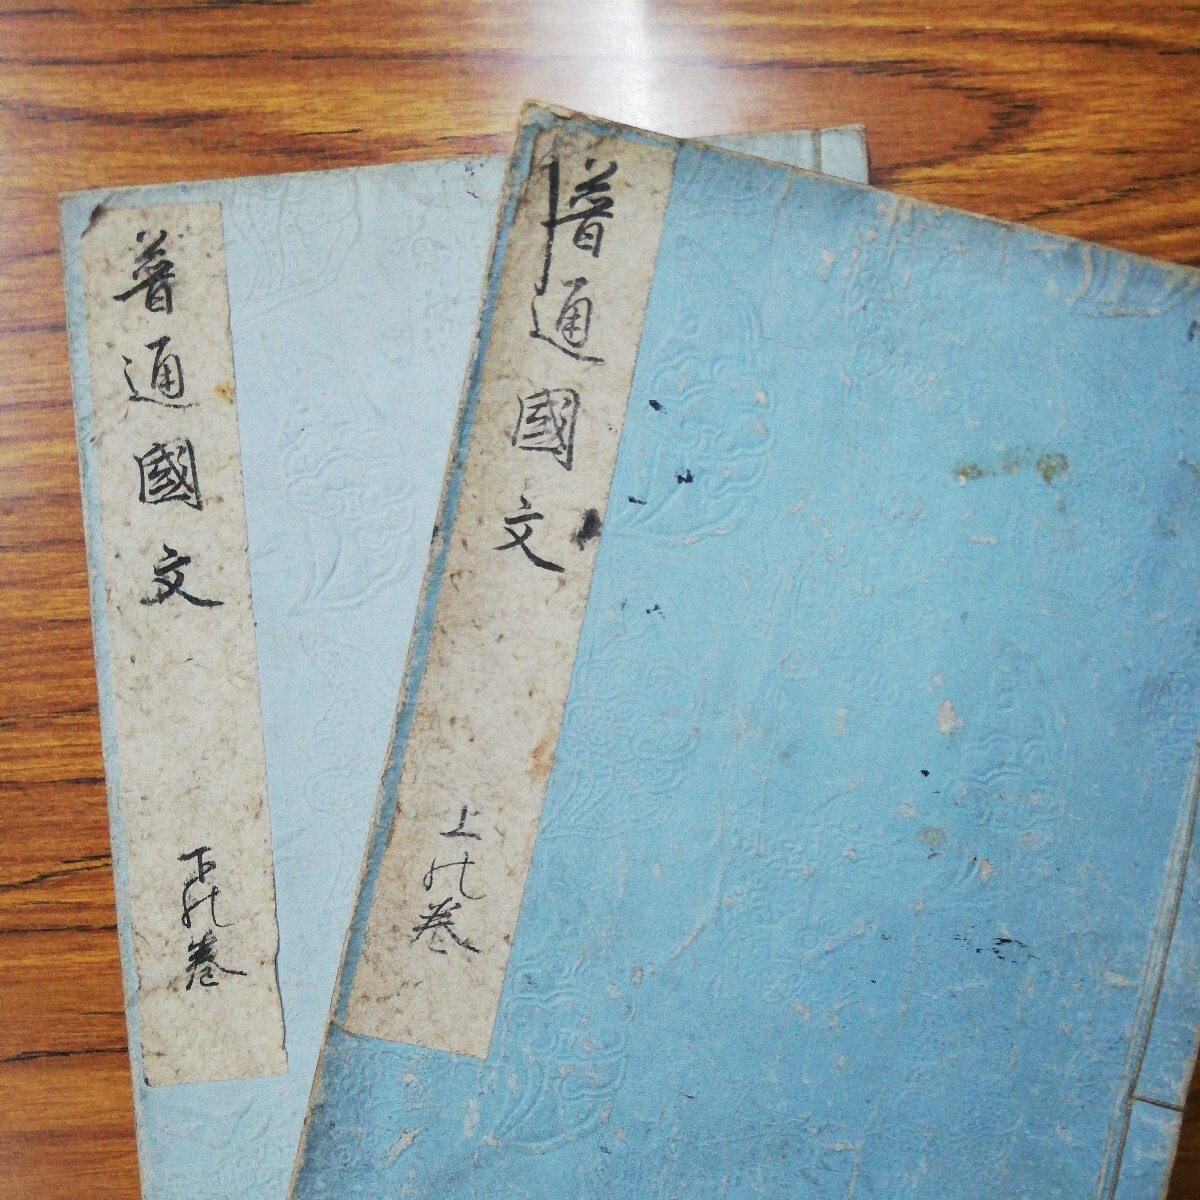 普通國文
上の巻
普通國文
下の巻